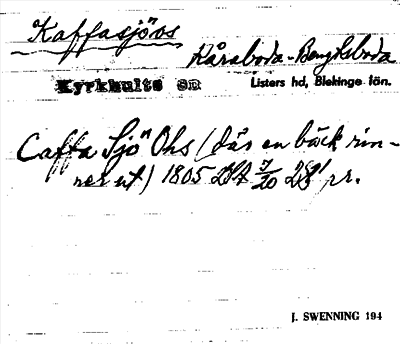 Kaffasjöos
Håraboda - Bengtsboda
Kyrkhults sn Listers hd, Blekinge län.
Caffa Sjö Ohs (där en bäck rin-
ner ut) 1805 7/20 pr.
J. SWENNING 194